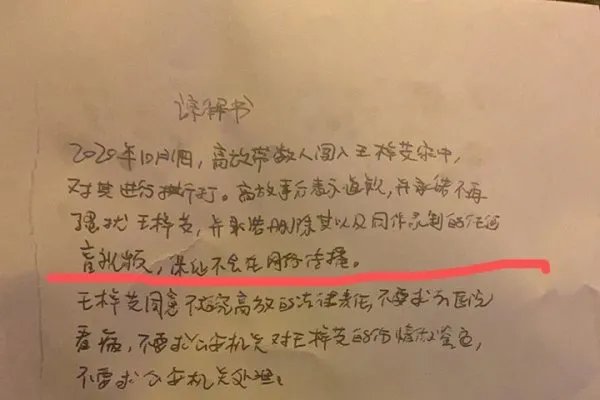 谅解书
2020年10月1日，高放带数人闯入王梓芠家中，
对其进行推打。高放事后表示道歉，并承诺不再
骚扰王梓芠，并承诺删除其以及同伴录制的任何
音视频，保证不会在网络传播。
王梓芠同意不追究高放的法律责任，不要求到医院
看病，不要求公安机关对王梓芠的伤情做鉴定，
不要求公安机关处理。